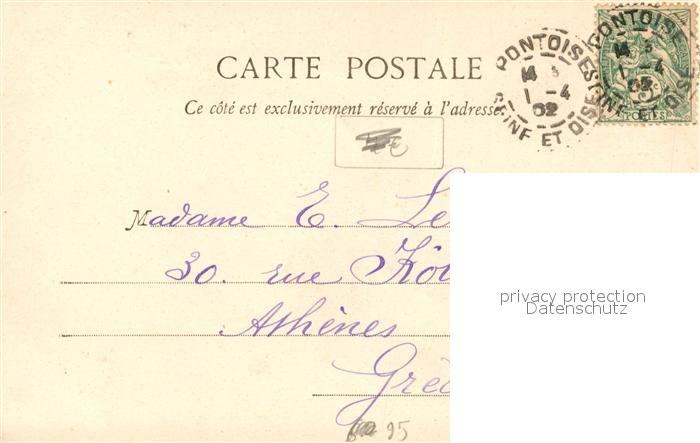 CARTE POSTALE
Ce côté est exclusivement réservé à l'adresse.
PONTOISE
1 -4
02
SEINE ET OISE
PONTOISE
1 -4
02
POSTES
Madame E. Le
30. rue
Athènes
Grèc
privacy protection
Datenschutz
95